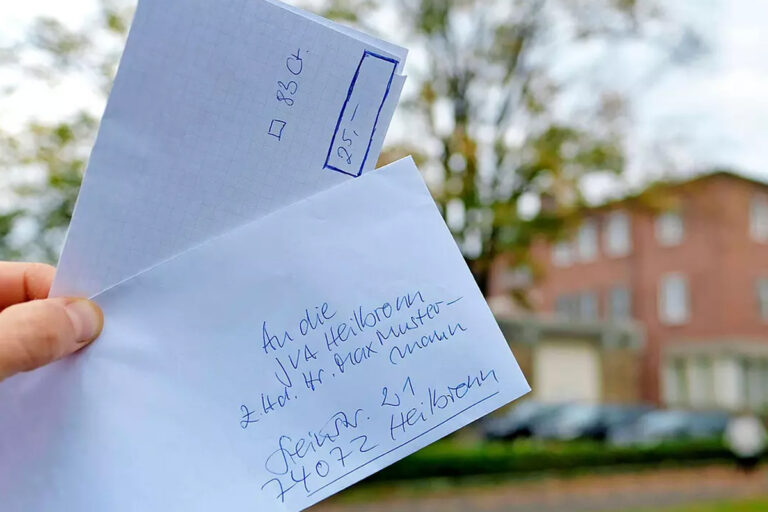 83 Ct.
25,–
An die
JVA Heilbronn
z.Hd. Hr. Max Muster-
mann
Steinstr. 21
74072 Heilbronn